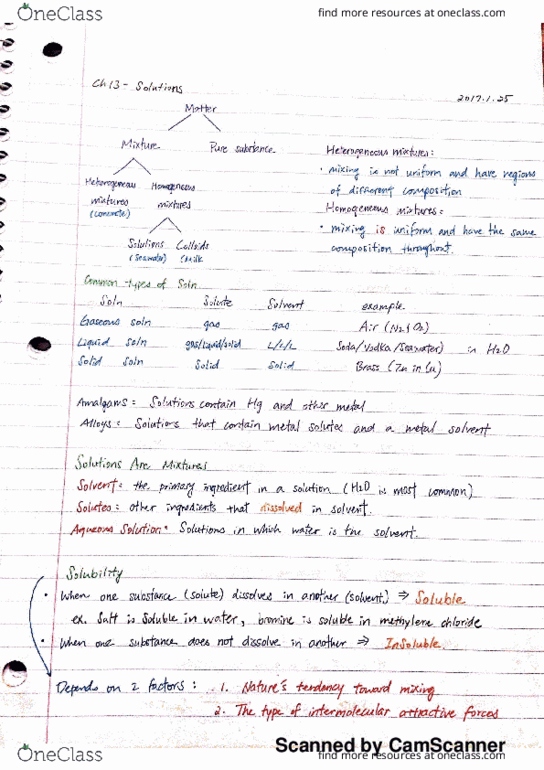 OneClass
find more resources at oneclass.com
Ch 13 - Solutions
2017.1.25
Matter
Mixture Pure substance
Heterogeneous mixtures:
• mixing is not uniform and have regions
of different composition
Homogeneous mixtures:
• mixing is uniform and have the same
composition throughout.
Heterogeneous mixtures (concrete)
Homogeneous mixtures
Solutions (Seawater)
Colloids (Milk
Common types of Soln
Soln Solute Solvent example
Gaseous soln gas gas Air (N2 & O2)
Liquid soln gas/liquid/solid L/L/L Soda/Vodka/Seawater) in H2O
Solid soln Solid Solid Brass (Zn in Cu)
Amalgams: Solutions contain Hg and other metal
Alloys: Solutions that contain metal solutes and a metal solvent
Solutions Are Mixtures
Solvent: the primary ingredient in a solution (H2O is most common)
Solutes: other ingredients that dissolved in solvent.
Aqueous Solution: Solutions in which water is the solvent.
Solubility
• When one substance (solute) dissolves in another (solvent) ⇒ Soluble
ex. Salt is Soluble in water, bromine is soluble in methylene chloride
• When one substance does not dissolve in another ⇒ InSoluble.
Depends on 2 factors: 1. Nature's tendency toward mixing
2. The type of intermolecular attractive forces
Scanned by CamScanner
OneClass
find more resources at oneclass.com